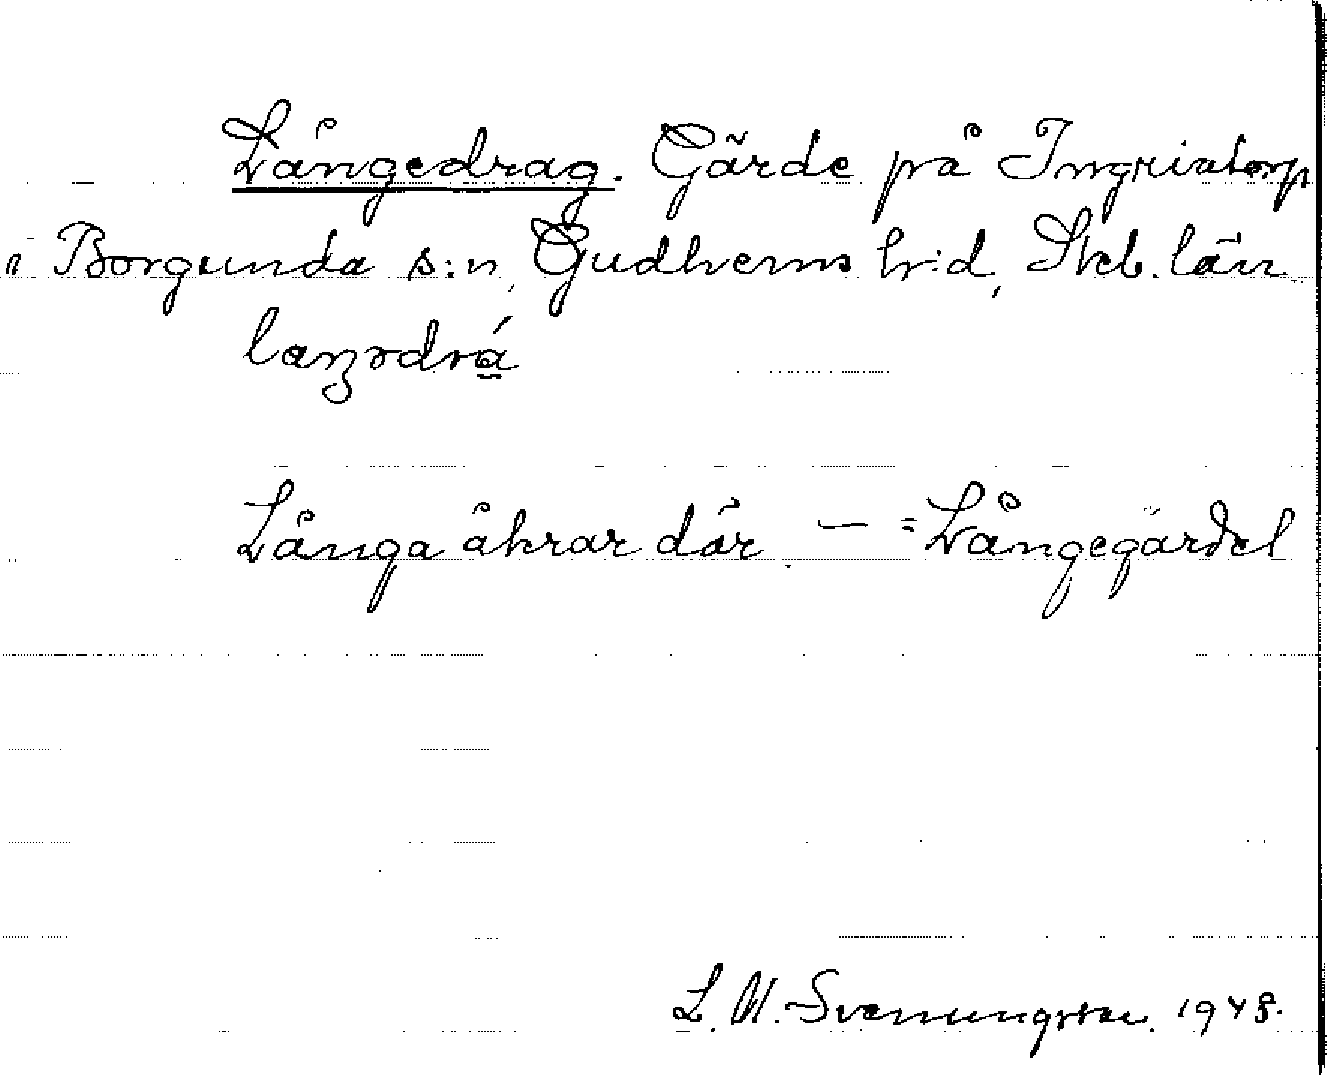 Långedrag. Gärde på Ingriatorp
i Borgunda s:n, Gudhems h:d, Skb. län
Långa åkrar där — = Långegärdet
L. M. Svenungsson. 1948.